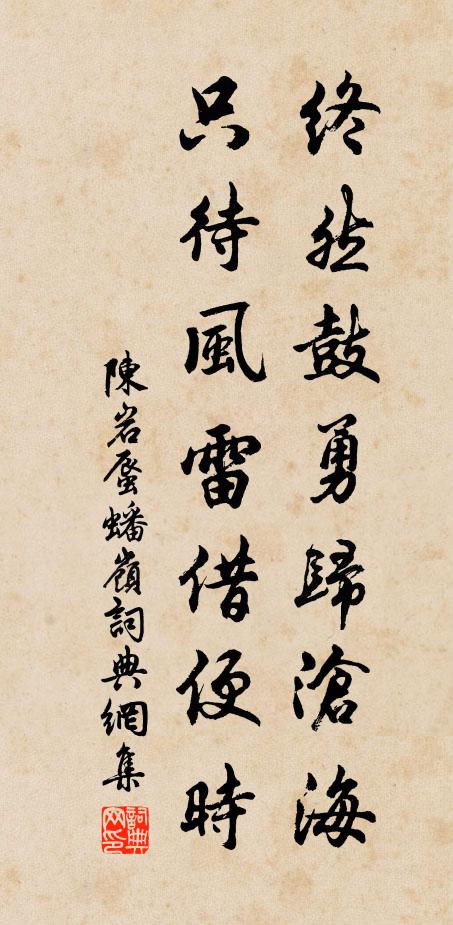 終然鼓勇歸滄海
只待風雷借便時
陳岩蜃蟠嶺詞典網集
詞典網印